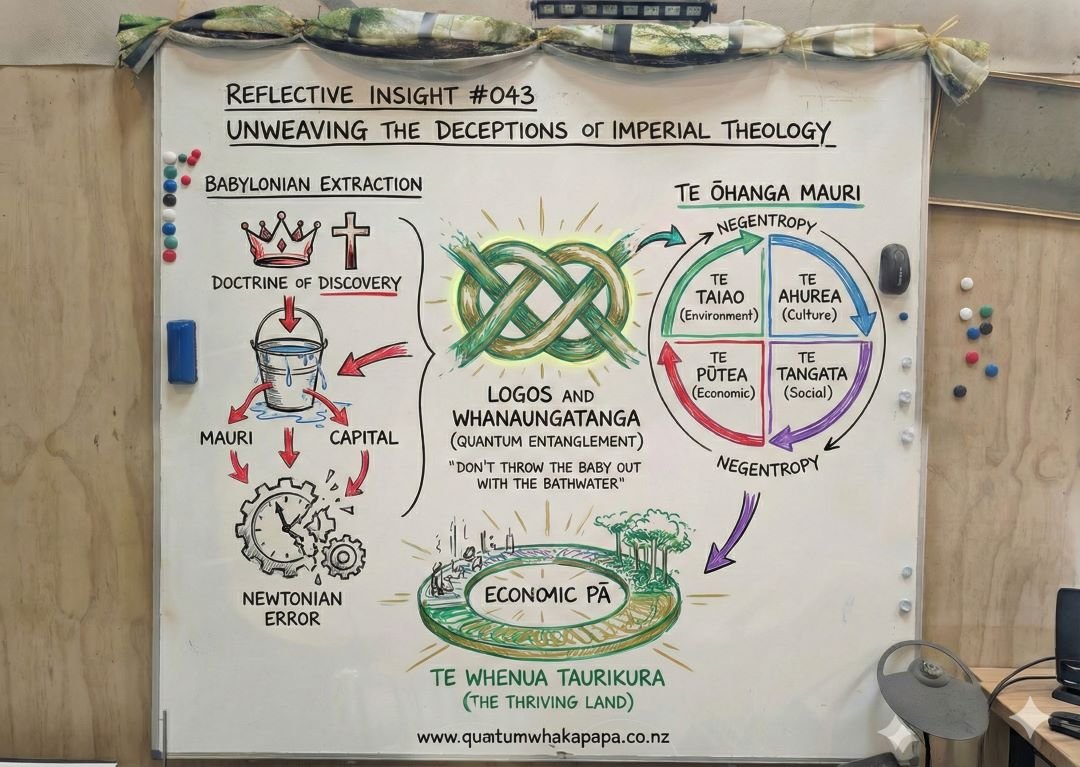 REFLECTIVE INSIGHT #043
UNWEAVING THE DECEPTIONS OF IMPERIAL THEOLOGY
BABYLONIAN EXTRACTION
DOCTRINE OF DISCOVERY
MAURI
CAPITAL
NEWTONIAN
ERROR
LOGOS AND
WHANAUNGATANGA
(QUANTUM ENTANGLEMENT)
"DON'T THROW THE BABY OUT
WITH THE BATHWATER"
TE ŌHANGA MAURI
NEGENTROPY
TE
TAIAO
(Environment)
TE
AHUREA
(Culture)
TE
PŪTEA
(Economic)
TE
TANGATA
(Social)
NEGENTROPY
ECONOMIC PĀ
TE WHENUA TAURIKURA
(THE THRIVING LAND)
www.quatumwhakapapa.co.nz